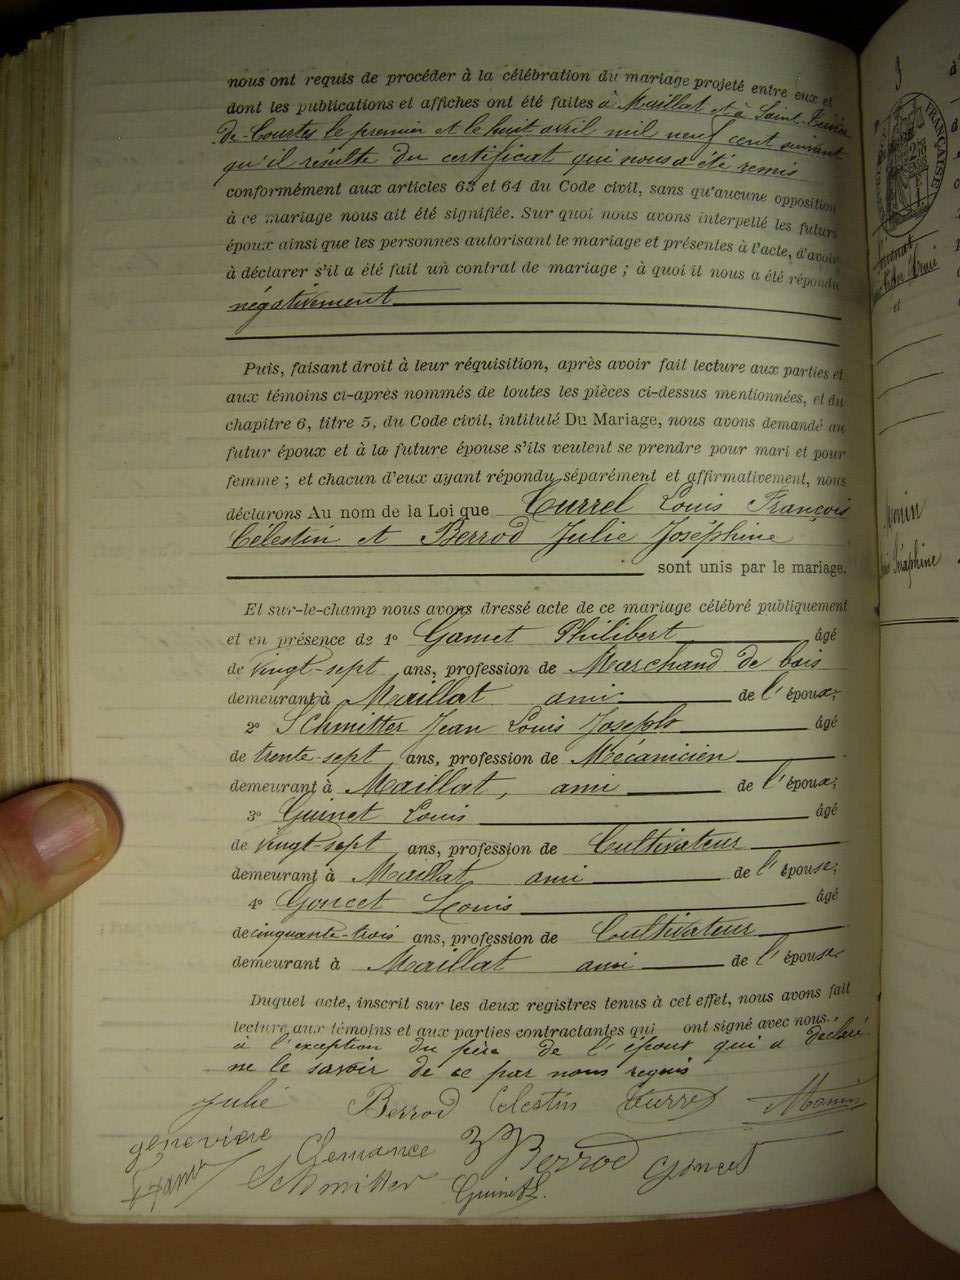 nous ont requis de procéder à la célébration du mariage projeté entre eux et
dont les publications et affiches ont été faites à Maillat et à Saint-
de-Courtes le premier et le huit avril mil neuf cent suivant
qu'il résulte du certificat qui nous a été remis
conformément aux articles 63 et 64 du Code civil, sans qu'aucune opposition
à ce mariage nous ait été signifiée. Sur quoi nous avons interpellé les futurs
époux ainsi que les personnes autorisant le mariage et présentes à l'acte, d'avoir
à déclarer s'il a été fait un contrat de mariage ; à quoi il nous a été répondu
négativement
Puis, faisant droit à leur réquisition, après avoir fait lecture aux parties et
aux témoins ci-après nommés de toutes les pièces ci-dessus mentionnées, et du
chapitre 6, titre 5, du Code civil, intitulé Du Mariage, nous avons demandé au
futur époux et à la future épouse s'ils veulent se prendre pour mari et pour
femme ; et chacun d'eux ayant répondu séparément et affirmativement, nous
déclarons Au nom de la Loi que Turrel Louis François
Célestin et Berrod Julie Joséphine
sont unis par le mariage.
Et sur-le-champ nous avons dressé acte de ce mariage célébré publiquement
et en présence de 1° Gamet Philibert âgé
de vingt-sept ans, profession de Marchand de bois
demeurant à Maillat ami de l'époux;
2° Schmitter Jean Louis Joseph âgé
de trente-sept ans, profession de Mécanicien
demeurant à Maillat, ami de l'époux;
3° Guinet Louis âgé
de vingt-sept ans, profession de Cultivateur
demeurant à Maillat ami de l'épouse;
4° Goncet Louis âgé
de cinquante-trois ans, profession de Cultivateur
demeurant à Maillat ami de l'épouse
Duquel acte, inscrit sur les deux registres tenus à cet effet, nous avons fait
lecture aux témoins et aux parties contractantes qui ont signé avec nous.
à l'exception du père de l'époux qui a déclaré
ne le savoir de ce par nous requis
Julie Berrod Celestin Turrel Monin
geneviève Clemance Berrod Goncet
Schmitter Guinet L.
FRANÇAISE
et
Monin
Séraphine